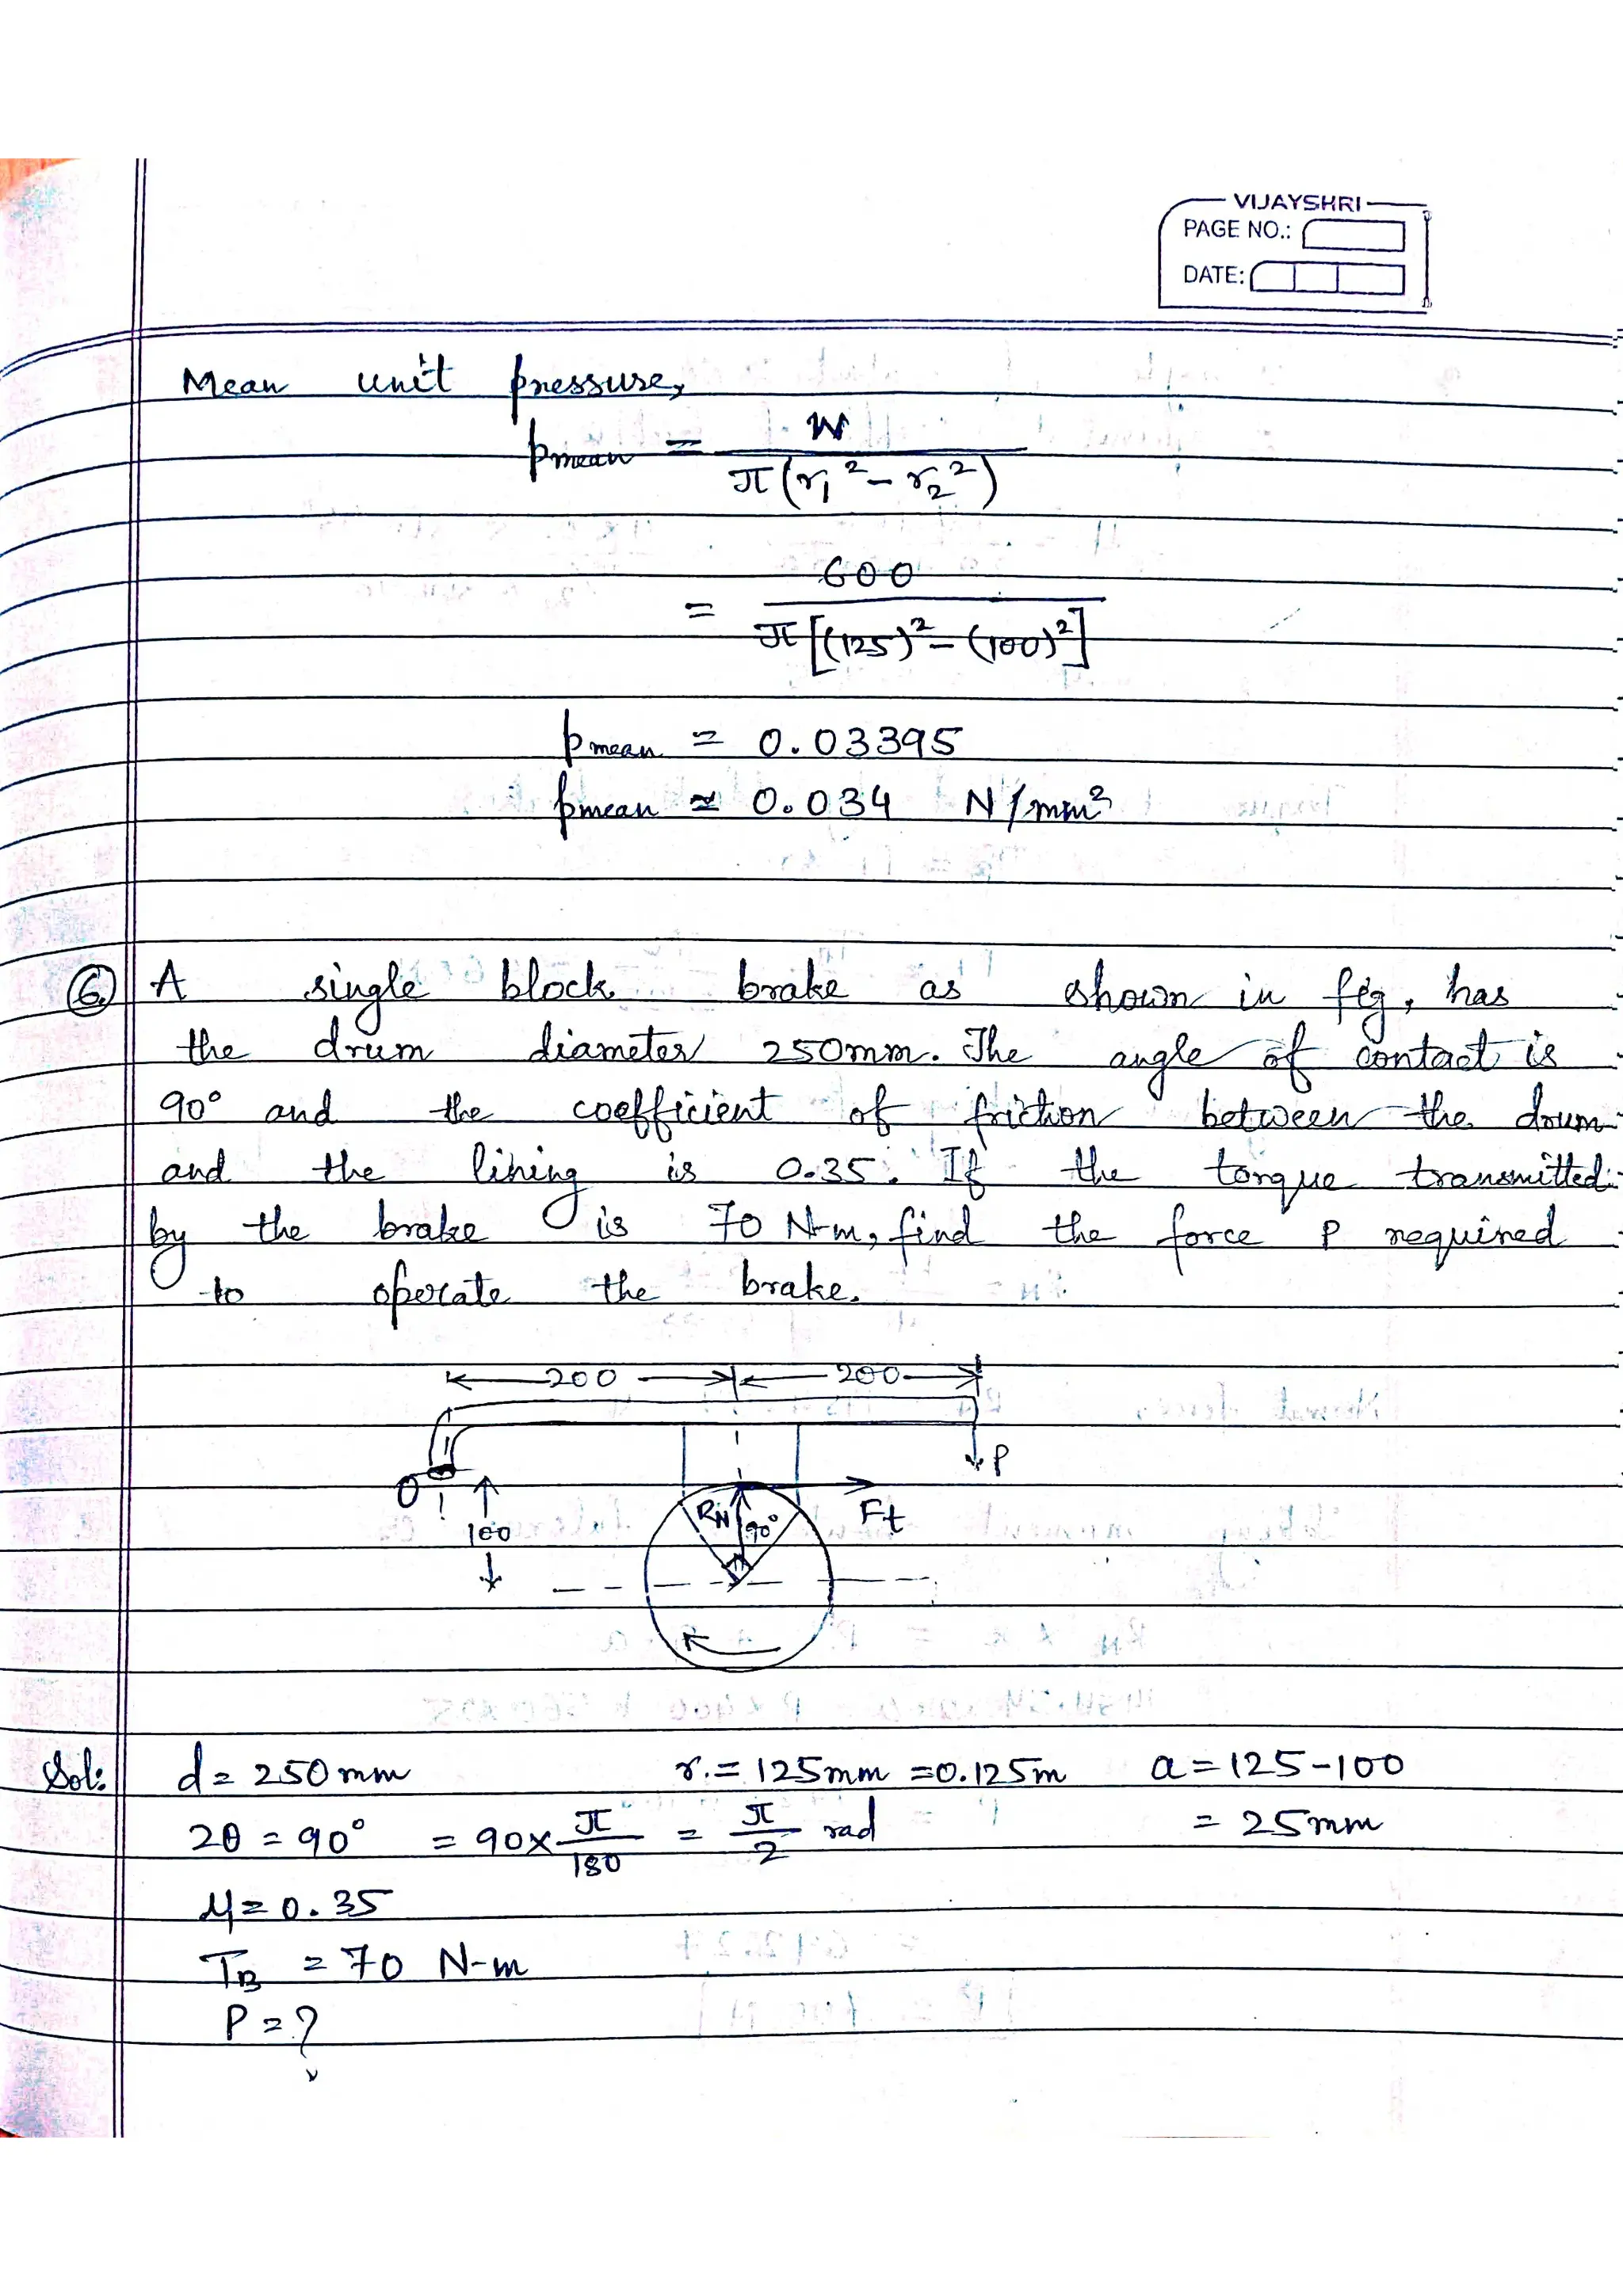 VIJAYSHRI
PAGE NO.:
DATE:
Mean unit pressure,
pmean = W / π(r₁² - r₂²)
= 600 / π[(125)² - (100)²]
pmean = 0.03395
pmean ≈ 0.034 N/mm²
6. A single block brake as shown in fig, has
the drum diameter 250mm. The angle of contact is
90° and the coefficient of friction between the drum
and the lining is 0.35. If the torque transmitted
by the brake is 70 N-m, find the force P required
to operate the brake.
200 200
P
O
100
RN 90° Ft
Sol: d = 250mm r = 125mm = 0.125m a = 125-100
2θ = 90° = 90 × π/180 = π/2 rad = 25mm
μ = 0.35
TB = 70 N-m
P = ?